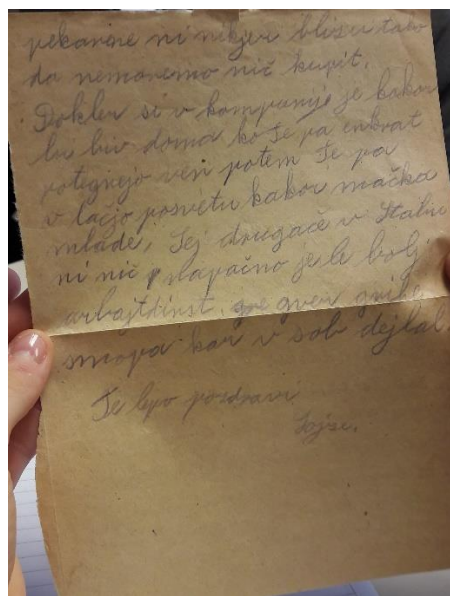 pekarine ni nikjer blizu tako
da nemoremo nič kupit.
Dokler si v kompanij je kakor
bi biv doma ko Te pa enkrat
potegnejo ven potem Te pa
v lačjo posvetu kakor mačka
mlade, Sej drugače v Stalu
ni nič napačno je le bolj
arbajtdinst, gver
smo pa kar v sob dejlal.
Te lepo pozdravi
Lojze.